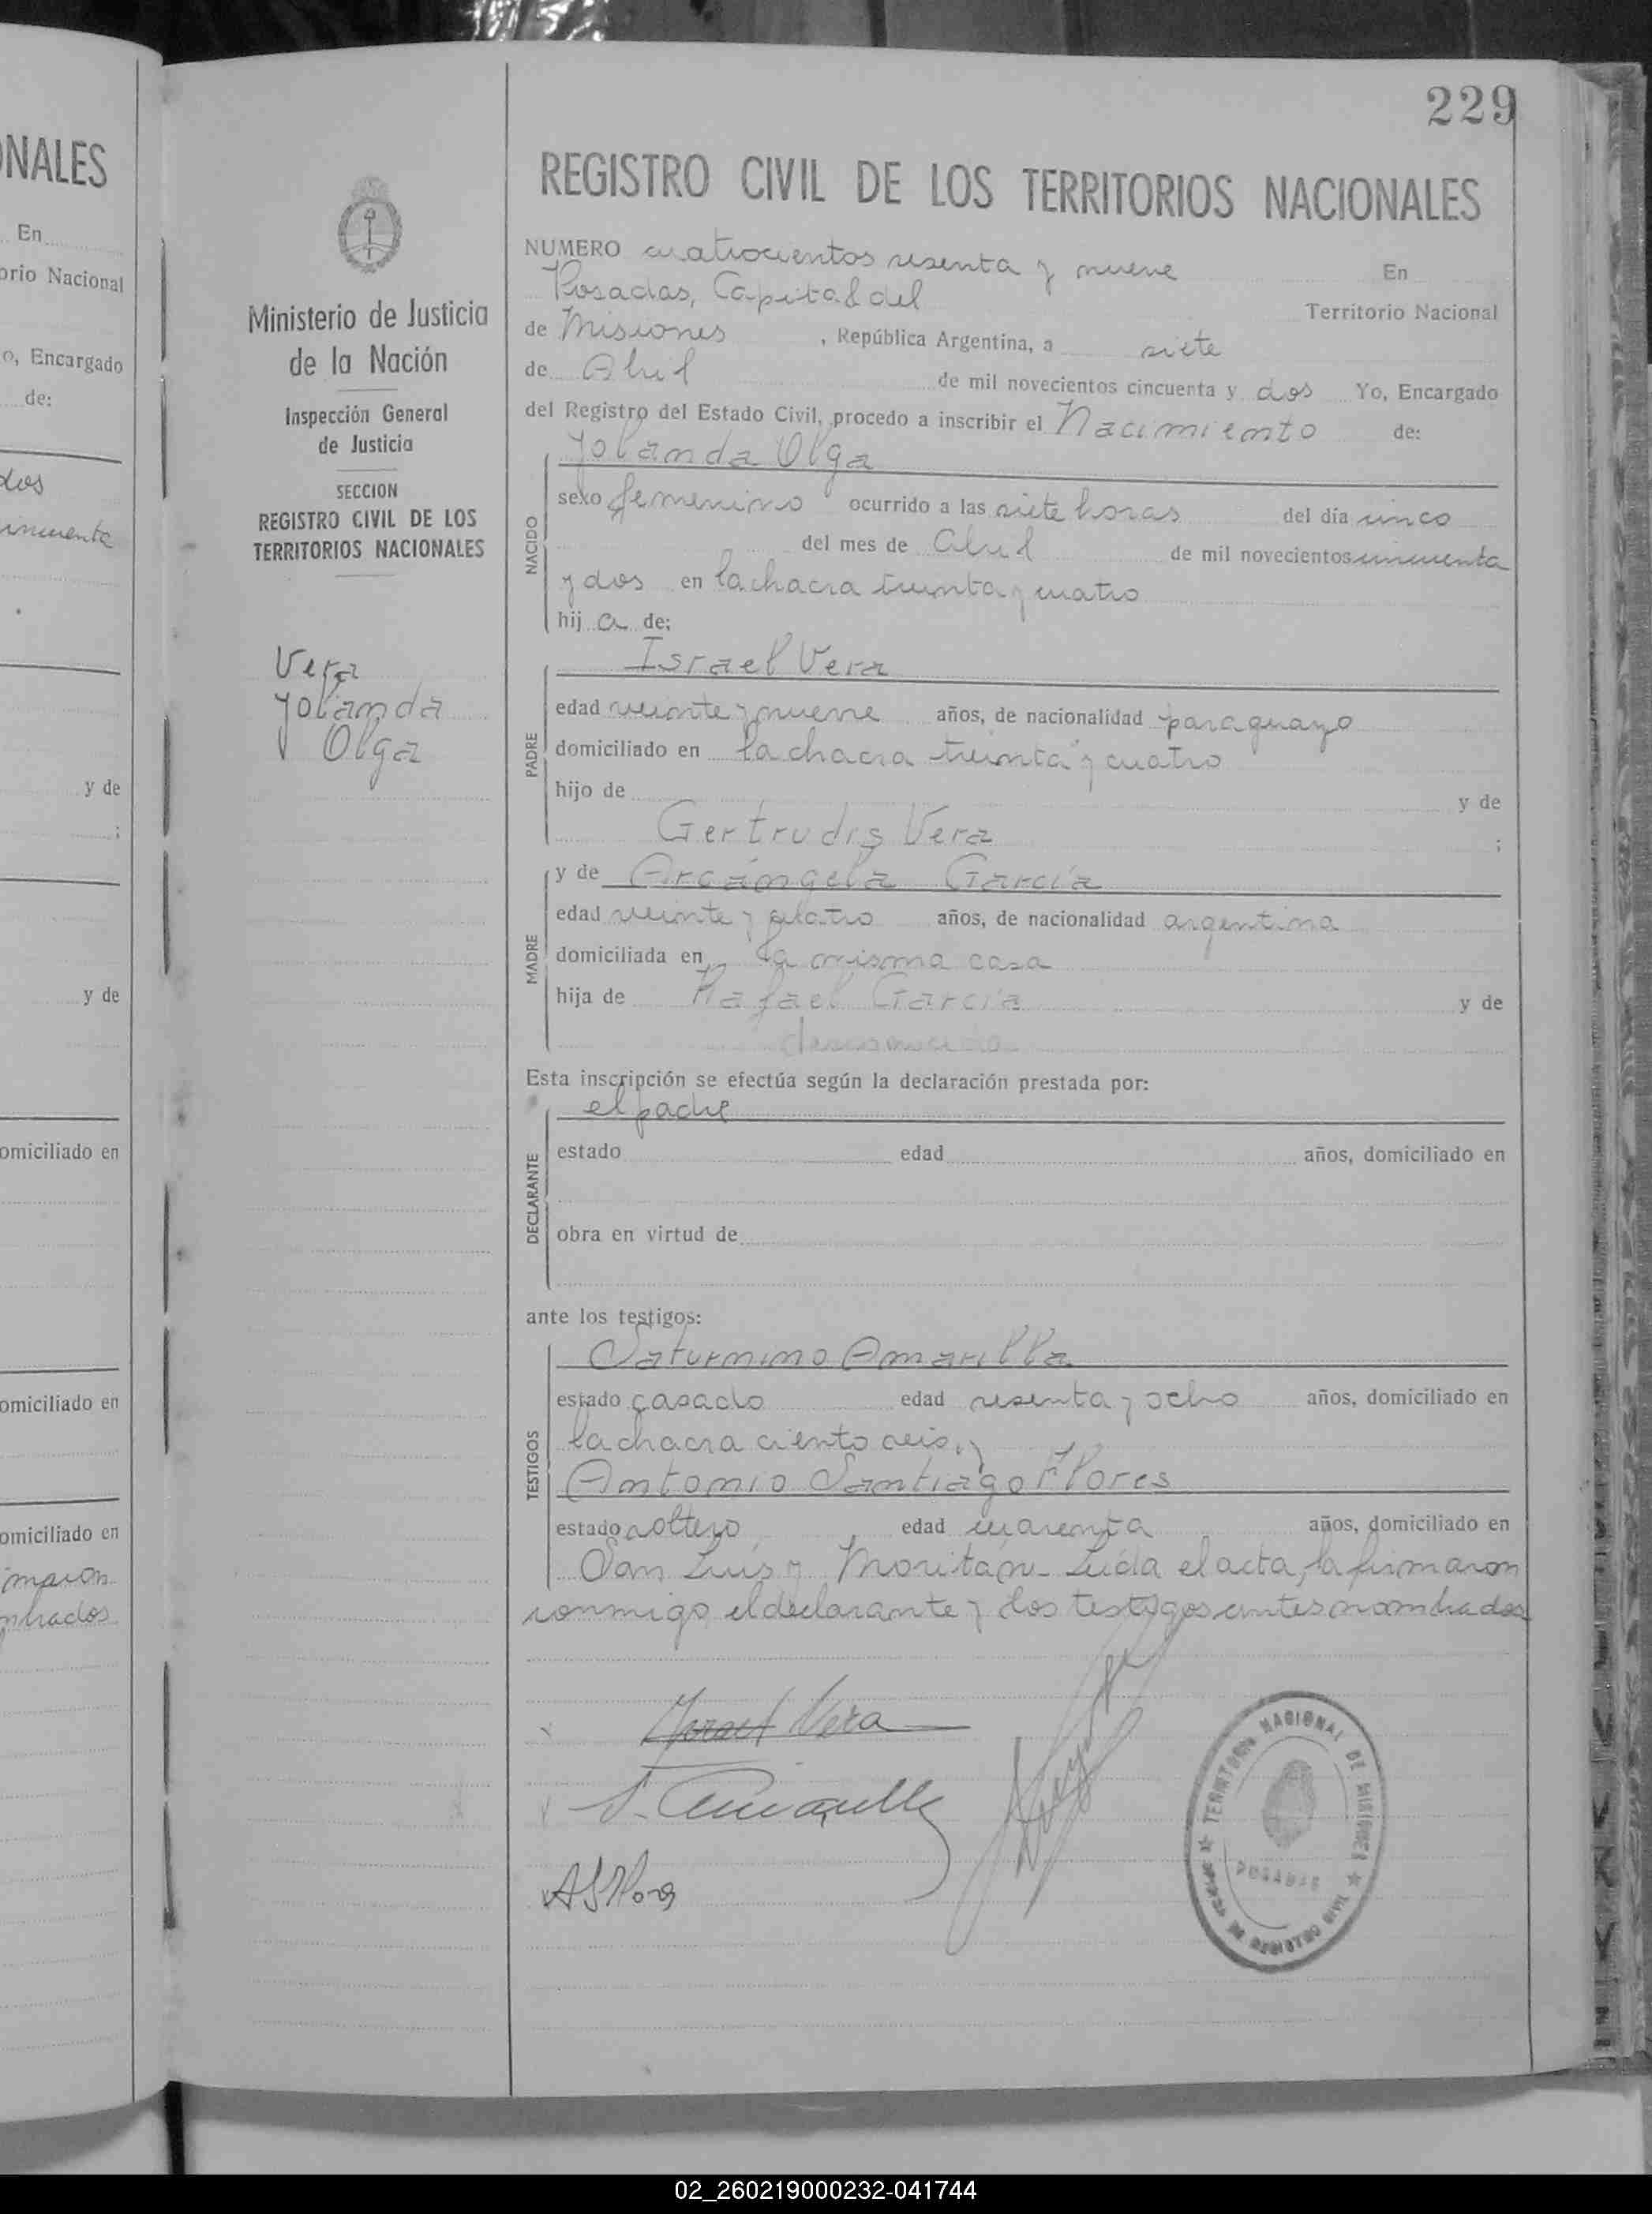 NALES
En
orio Nacional
o, Encargado
de:
dos
cincuenta
y de
;
y de
omiciliado en
omiciliado en
omiciliado en
maron
mbrados
Ministerio de Justicia
de la Nación
Inspección General
de Justicia
SECCION
REGISTRO CIVIL DE LOS
TERRITORIOS NACIONALES
Vera
Yolanda
Olga
229
REGISTRO CIVIL DE LOS TERRITORIOS NACIONALES
NUMERO cuatrocientos sesenta y nueve En
Posadas, Capital del Territorio Nacional
de Misiones , República Argentina, a siete
de Abril de mil novecientos cincuenta y dos Yo, Encargado
del Registro del Estado Civil, procedo a inscribir el Nacimiento de:
Yolanda Olga
NACIDO
sexo femenino ocurrido a las siete horas del día cinco
del mes de Abril de mil novecientos cincuenta
y dos en la chacra treinta y cuatro
hij a de:
Israel Vera
PADRE
edad veinte y nueve años, de nacionalidad paraguayo
domiciliado en la chacra treinta y cuatro
hijo de y de
Gertrudis Vera ;
y de Arcángela García
MADRE
edad veinte y cuatro años, de nacionalidad argentina
domiciliada en la misma casa
hija de Rafael García y de
Esta inscripción se efectúa según la declaración prestada por:
el padre
DECLARANTE
estado edad años, domiciliado en
obra en virtud de
ante los testigos:
Saturnino Amarilla
TESTIGOS
estado casado edad sesenta y ocho años, domiciliado en
la chacra ciento seis, y
Antonio Santiago Flores
estado soltero edad cuarenta años, domiciliado en
San Luis y Moritán- Leída el acta, la firmaron
conmigo, el declarante y los testigos antes nombrados
Israel Vera
S. Amarilla
ASFlores
TERRITORIO NACIONAL DE MISIONES
POSADAS
DE REGISTRO CIVIL
02_260219000232-041744